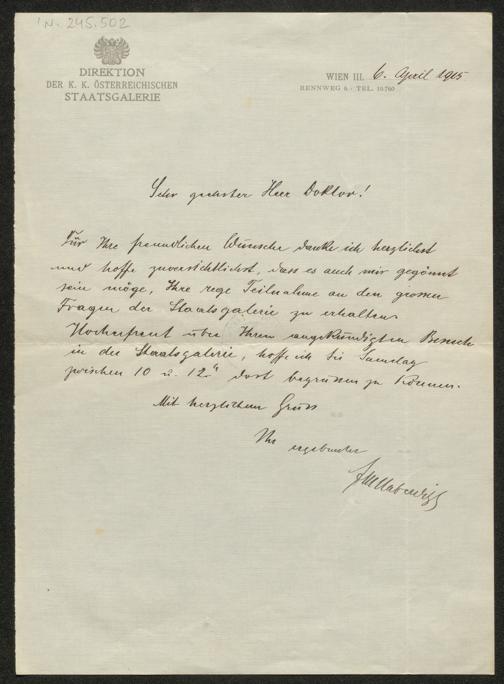 IN. 245.502
DIREKTION
DER K. K. ÖSTERREICHISCHEN
STAATSGALERIE
WIEN III. 6. April 1915
RENNWEG 6 · TEL. 10760
Sehr geehrter Herr Doktor!
Für Ihre freundlichen Wünsche danke ich herzlichst
und hoffe zuversichtlichst, dass es auch mir gegönnt
sein möge, Ihre rege Teilnahme an den grossen
Fragen der Staatsgalerie zu erhalten.
Hocherfreut über Ihren angekündigten Besuch
in der Staatsgalerie, hoffe ich Sie Samstag
zwischen 10 u. 12h dort begrüssen zu können.
Mit herzlichem Gruss
Ihr ergebenster
FMHaberditzl